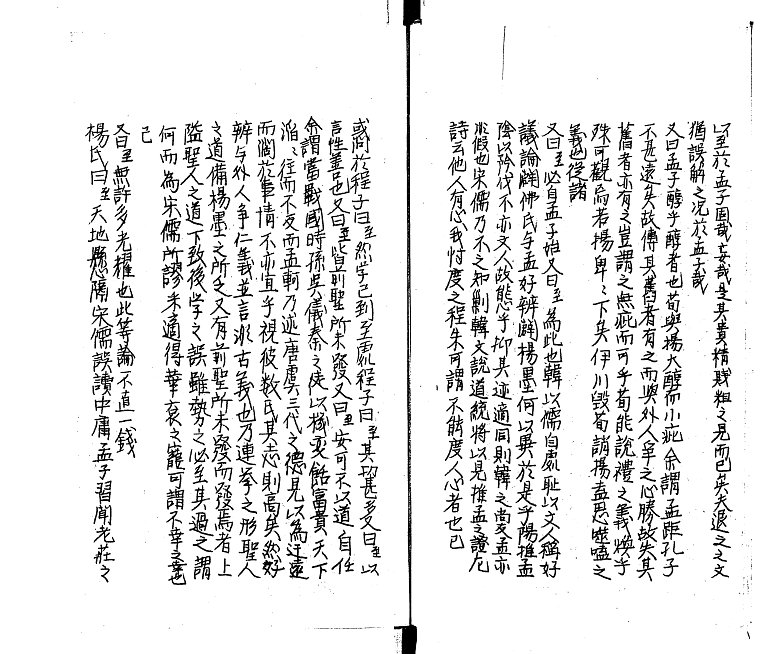 以至於孟子固哉妄哉是其貴精賤粗之見而已矣夫退之之文
猶誤解之况於孟子哉
又曰孟子醇乎醇者也荀與揚大醇而小疵余謂孟距孔子
不甚遠矣故傳其舊者有之而與外人爭之心勝故失其
舊者亦有之豈謂之無疵而可乎荀能說禮之義煥乎
殊可觀焉若揚卑卑下矣伊川毀荀誚揚盍思噬嗑之
義也從諸
又曰至必自孟子始又曰至為此也韓以儒自處恥以文人稱好
議論闢佛氏与孟好辨闢楊墨何以異於是乎陽推孟
陰以矜伐不亦文人故態乎抑其迹適同則韓之尚孟亦
非假也宋儒乃不之知剿韓文說道統將以見推孟之證尤
詩云他人有心我忖度之程朱可謂不能度人心者也已
或問於程子曰至然学已到至處程子曰至其功甚多又曰至以
言性善也又曰至皆前聖所未發又曰至安可不以道自任
余謂當戰國時孫吳儀秦之徒以機变餂富貴天下
滔〻往而不反而孟軻乃述唐虞三代之德見以為迂遠
而濶於事情不亦宜乎視彼数氏其志則高矣然好
辨与外人争仁義並言非古義也乃連挙之形聖人
之道備楊墨之所乏又有前聖所未發而發焉者上
隘聖人之道下致後学之誤雖勢之必至其過之謂
何而為宋儒所謬未適得華衮之寵可謂不幸之幸也
已
又曰至無許多光耀也此等論不直一錢
楊氏曰至天地懸隔宋儒誤讀中庸孟子習聞老莊之